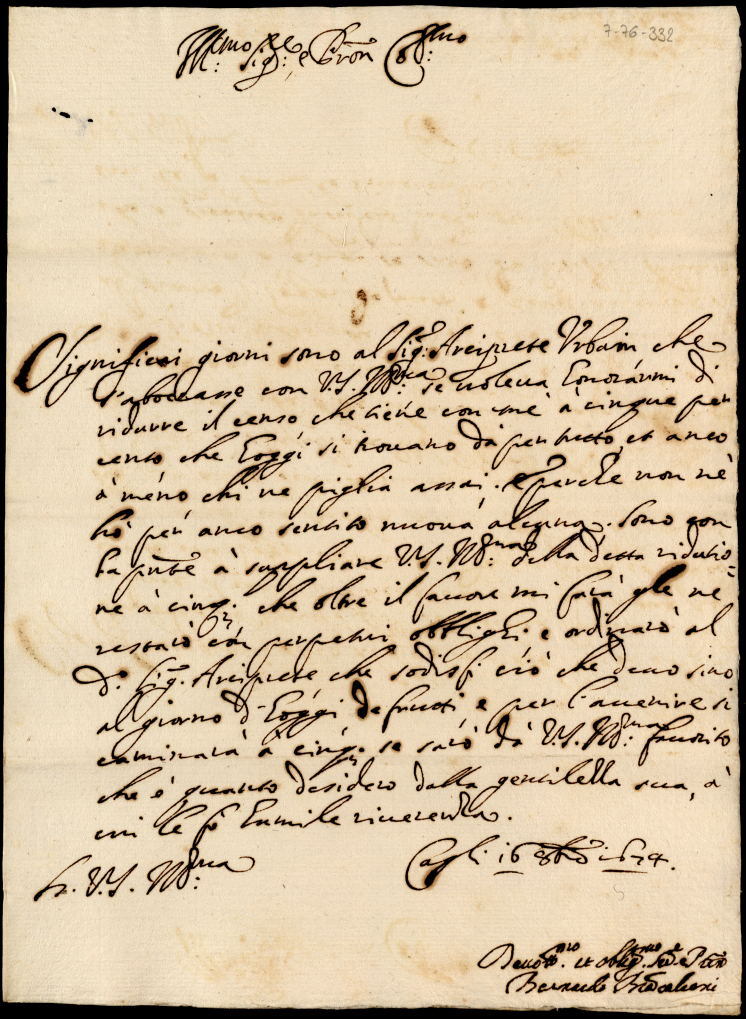 7-76-332
Ill:mo Sig:re e Pron Col:mo
Significai giorni sono al Sig.re Arciprete Urbani che
s'aboccasse con V.S. Ill:ma se voleva honorarmi di
ridurre il censo che tiene con mè à cinque per
cento che hoggi si trovano dà per tutto, et anco
à meno chi ne piglia assai. e perche non nè
hò per anco sentito nuova alcuna. Sono con
la pnte à supplicare V.S. Ill:ma della dettaridutio=
ne à cinq. che oltre il favore mi farà gle nè
restarò con perpetui obblighi e ordinarò al
d.o Sig.re Arciprete che sodisfi ciò che devo sino
al giorno d'hoggi de frutti e per l'avenire si
caminarà à cinq. se sarò dà V.S. Ill:ma favorito
che è quanto desidero dalla gentilezza sua, à
cui le fò humile riverenza.
Di V.S. Ill:ma
Cagli 16 8bre 1674.
Devot.mo et oblig.mo Se.re e
Bernardo